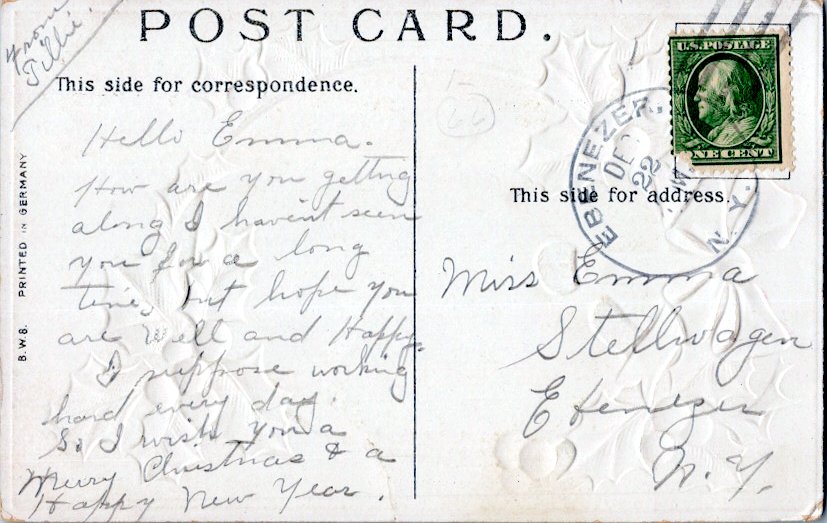 From
Tillie.
POST CARD.
This side for correspondence.
Hello Emma.
How are you getting
along I haven't seen
you for a long
time, but hope you
are well and Happy.
I suppose working
hard every day.
So I wish you a
Merry Christmas & a
Happy New Year.
B.W.8. PRINTED IN GERMANY
66
U.S. POSTAGE
ONE CENT
EBENEZER. N.Y.
DEC
22
This side for address.
Miss Emma
Stellwagen
Ebenezer
N.Y.